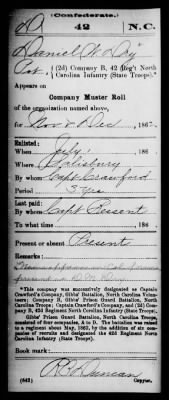 (Confederate.)
D 42 N.C.
Daniel W Day
Pvt., (2d) Company B, 42 Reg't North
Carolina Infantry (State Troops).*
Appears on
Company Muster Roll
of the organization named above,
for Nov & Dec, 186
Enlisted:
When July, 186
Where Salisbury
By whom Capt Crawford
Period 3 yrs
Last paid:
By whom Capt
To what time 186
Present or absent Present
Remarks:
*This company was successively designated as Captain
Crawford's Company, Gibbs' Battalion, North Carolina Volun-
teers; Company B, Gibbs' Prison Guard Battalion, North
Carolina Troops; Captain Crawford's Company, and (2d) Com-
pany B, 42d Regiment North Carolina Infantry (State Troops).
Gibbs' Prison Guard Battalion, North Carolina Troops,
consisted of four companies, A to D. The battalion was raised
to a regiment about May, 1862, by the addition of six com-
panies of recruits and designated the 42d Regiment North
Carolina Infantry (State Troops).
Book mark:
R B Duncan
(642) Copyist.